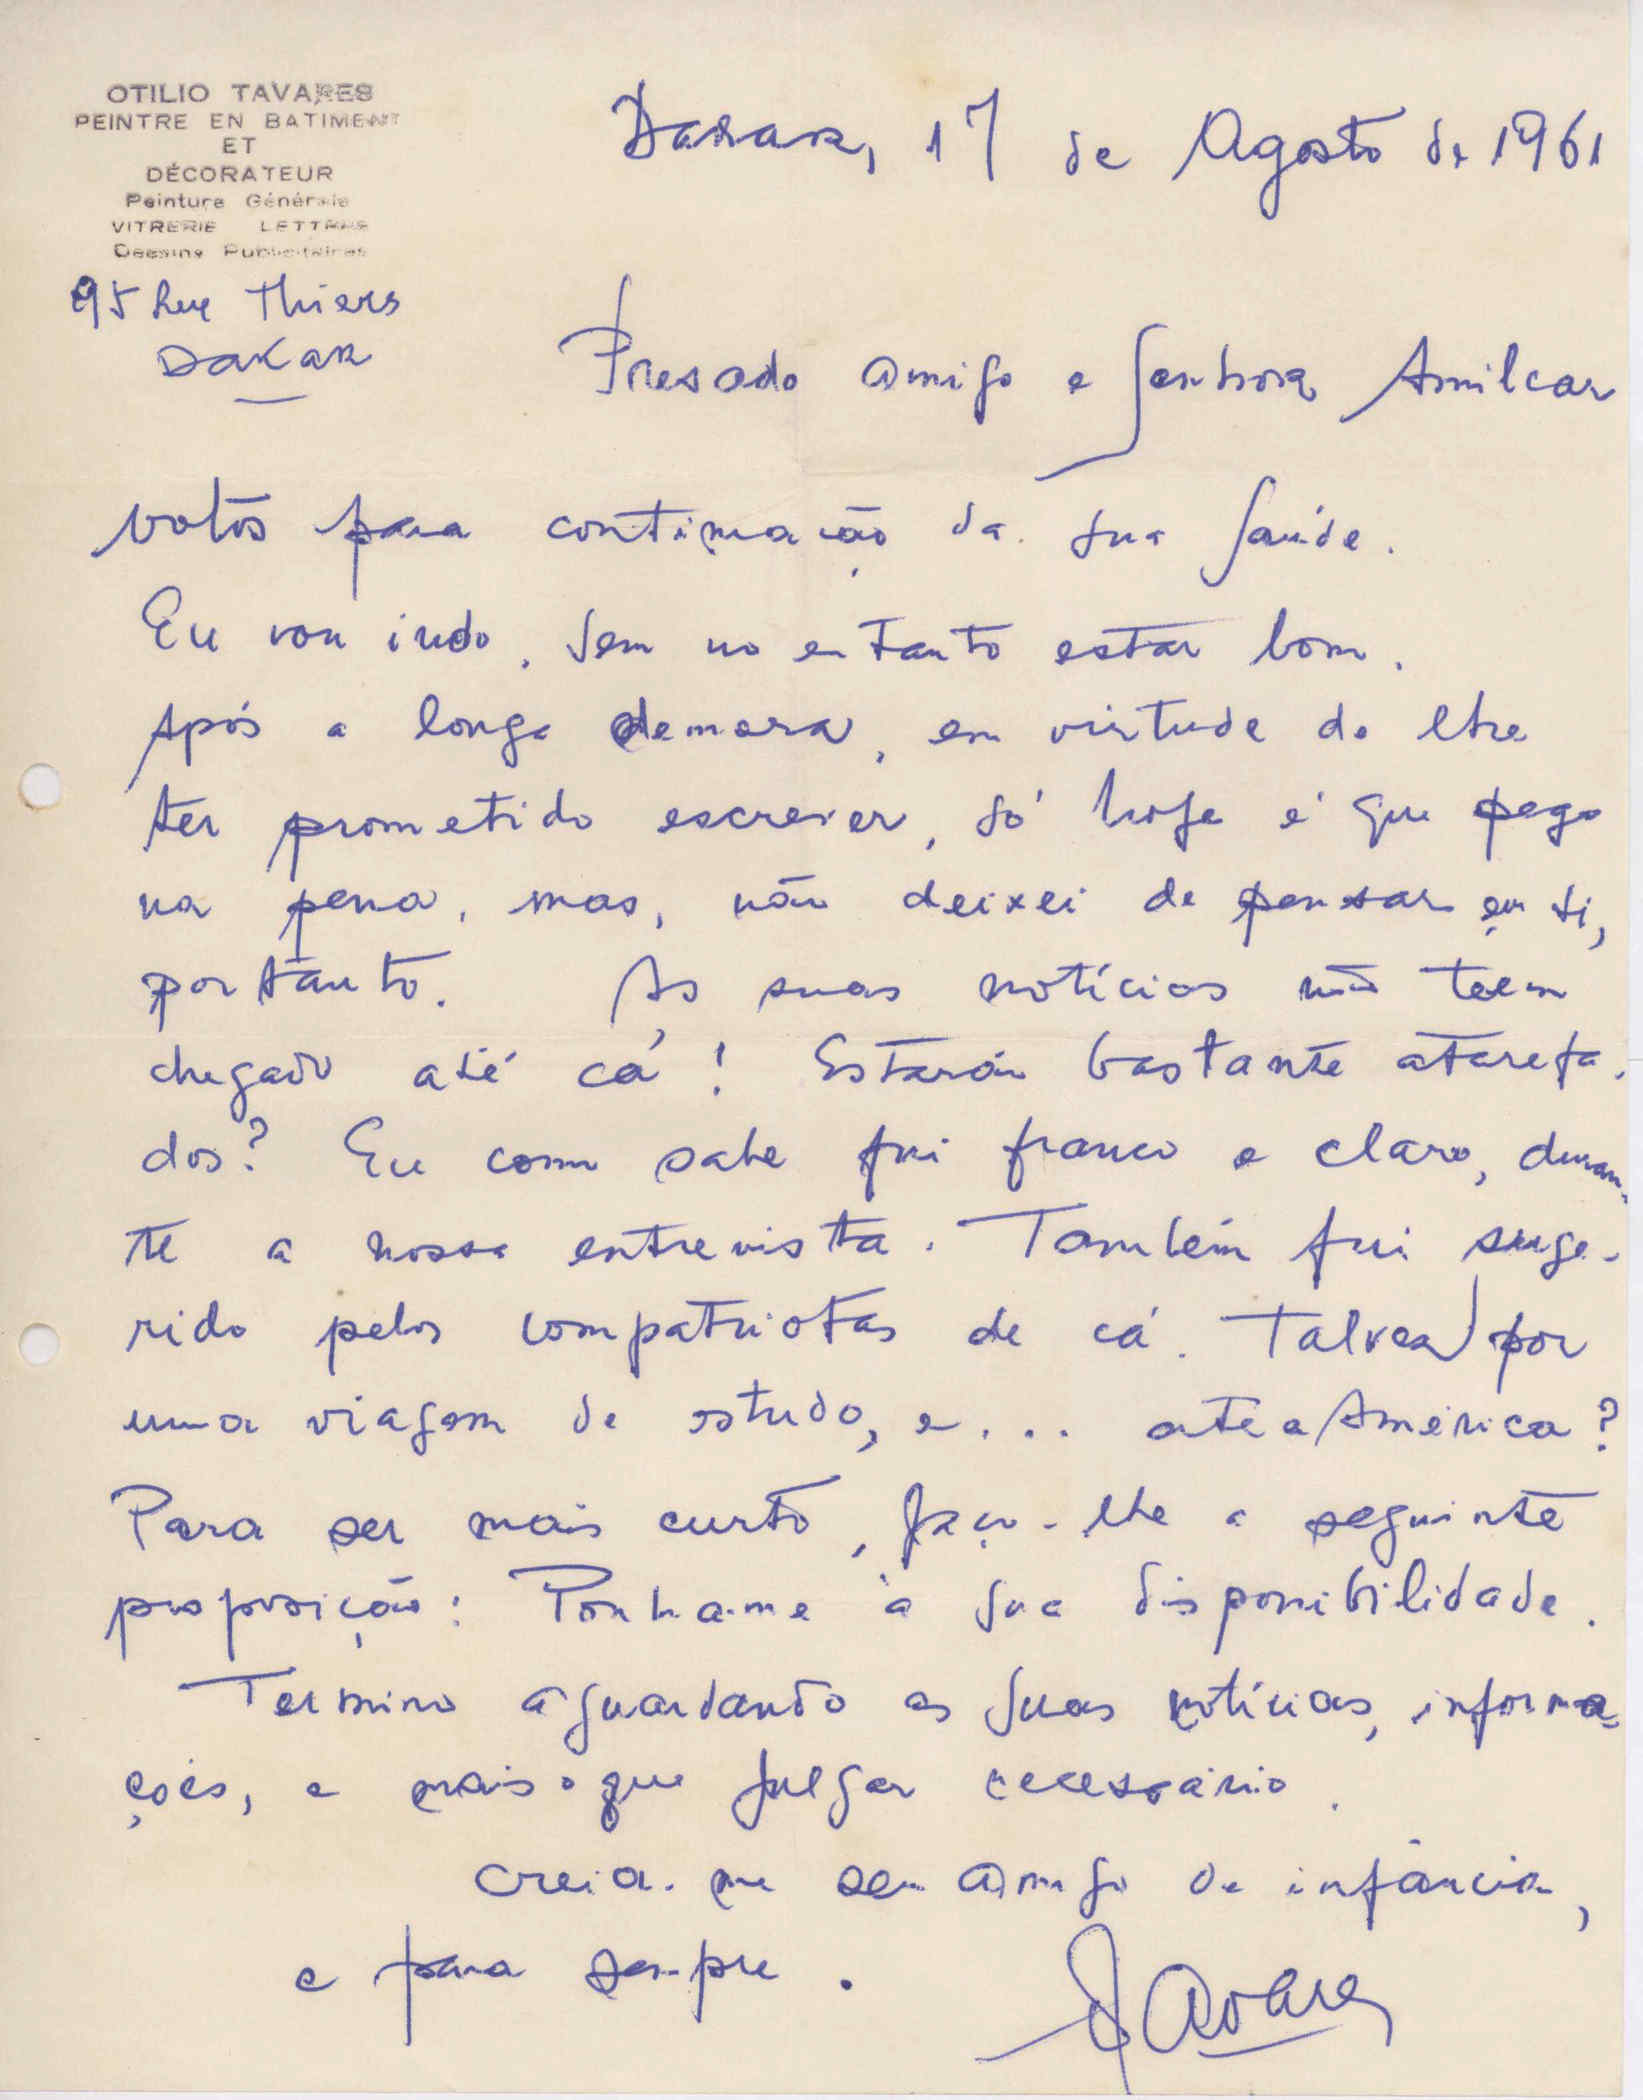 OTILIO TAVARES
PEINTRE EN BATIMENT
ET
DÉCORATEUR
Peinture Générale
VITRERIE LETTRES
Dessins Publicitaires
95 Rue Thiers
DAKAR
Dakar, 17 de Agosto de 1961
Presado amigo e Senhora Amilcar
votos para continuação da sua saúde.
Eu vou indo, sem no entanto estar bom.
Após a longa demora, em virtude de lhe
ter prometido escrever, só hoje é que pego
na pena, mas, não deixei de pensar em si,
portanto. As suas notícias não teem
chegado até cá! Estarão bastante atarefa-
dos? Eu como sabe fui franco e claro, duran-
te a nossa entrevista. Também fui suge-
rido pelos compatriotas de cá. Talvez por
uma viagem de estudo, e... até a América?
Para ser mais curto, faço-lhe a seguinte
proposição: Ponha-me à sua disponibilidade.
Termino aguardando as suas notícias, informa-
ções, e mais o que julgar necessário.
Creia-me seu amigo de infância,
e para sempre.
Tavares